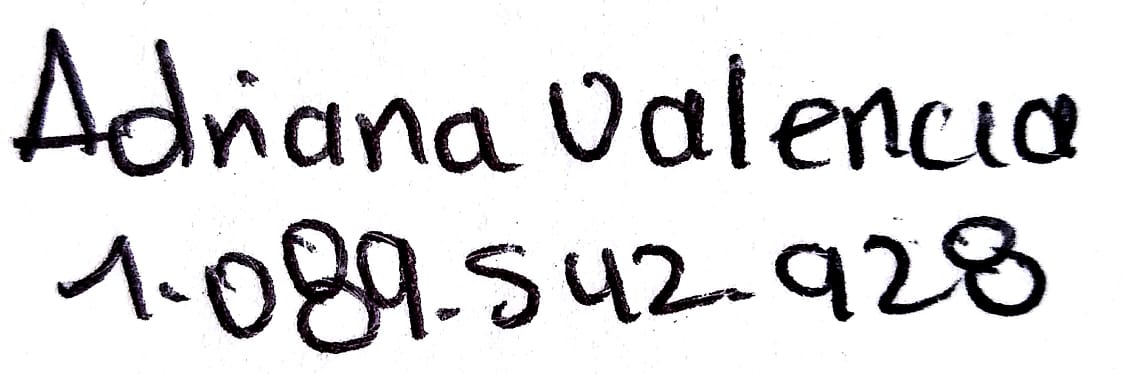 Adriana Valencia
1.089.542.928